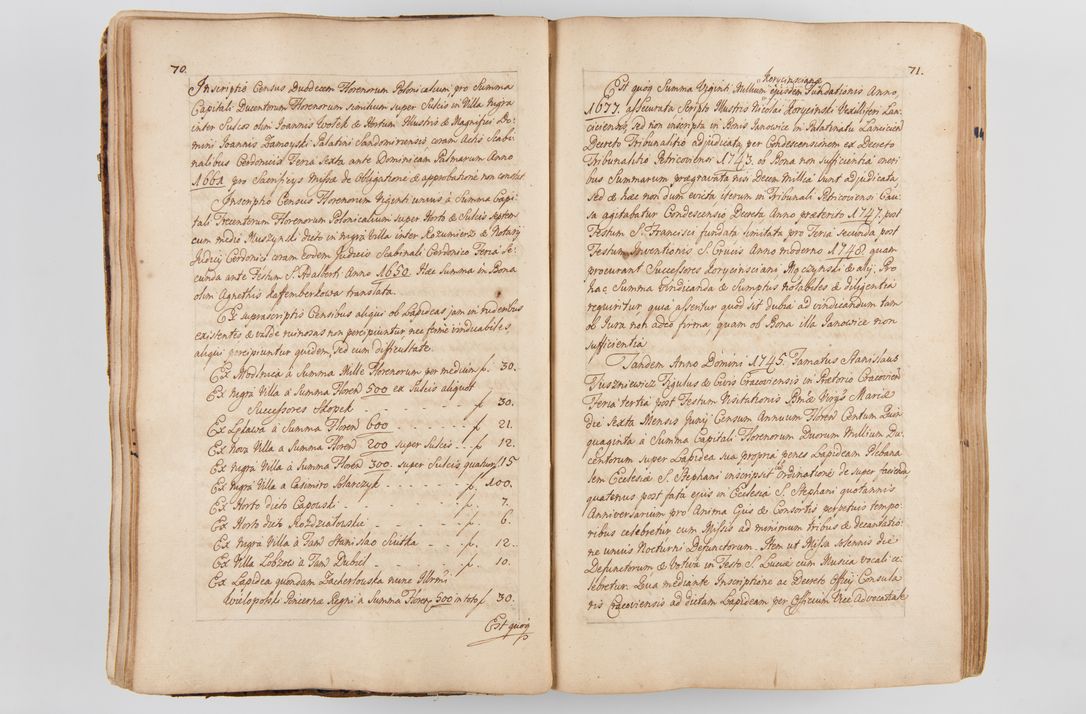 70.
Inscriptio Census Duodecim Florenorum Polonicalium pro Summa
Capitali Ducentorum Florenorum similium super Sulcis in Villa Nigra
inter Sulcos olim Joannis Wolek & Hortum Illustris & Magnifici Do-
mini Joannis Zamoyski Palatini Sandomiriensis, coram Actis Scabi-
nalibus Cerdonicis Feria Sexta ante Dominicam Palmarum Anno
1661 pro Sacrificijs Missa de Obligatione & approbatione non constat
Inscriptio Census Florenorum Viginti unius à Summa Capi-
tali Trecentorum Florenorum Polonicalium super Horto & Sulcis septem
cum medio Muszynski dicto in nigra Villa inter Kazumierz & Notarij
Judicij Cerdonici coram eodem Judicio Scabinali Cerdonico Feria Se-
cunda ante Festum S. Adalberti Anno 1650. Hæc Summa in Bona
olim Agnethis Raffemberkowa translata.
Ex suprascriptis Censibus aliqui ob Lapideas jam in ruderibus
existentes & valde ruinosas non percipiuntur nec forme vindicabiles
aliqui percipiuntur quidem, sed cum difficultate.
Ex Modlnica à Summa Mille Florenorum per medium f. 30.
Ex nigra Villa à Summa Floren 500 ex Sulcis aliquot
Successores Skopek f 30.
Ex Ledawa à Summa Floren 600 f. 21.
Ex Nova Villa a Summa Floren 200 super Sulcis f. 12.
Ex nigra Villa à Summa Floren 300. super Sulcis quatuor f. 15
Ex nigra Villa a Casimiro Solarczyk f. 100.
Ex Horto dicto Lapowski f. 7.
Ex Horto dicto Rozdziatowski f. 6.
Ex Negra Villa à Fam Stanislao Siutka f. 12.
Ex Villa Lobzow à Fam Dubiel f. 10.
Ex Lapidea quondam Zacherlowska nunc Illrmi
Wielopolski Pincernæ Regni à Summa Floren 500 in toto f. 30.
Est quoq
71.
Korycinscianæ
Est quoq Summa Viginti Millium ejusdem Fundationis Anno,
1677. assecurata Scripto Illustris Nicolai Korycinski Vexilliferi Lan-
ciciensis, sed non inscripta in Bonis Janowice in Palatinatu Lanicien
Decreto Tribunalitio adjudicata, per Condescensionem ex Decreto
Tribunalitio Petricovien 1743. ob Bona non sufficientia oneri
bus Summarum prægravata nisi Decem Millia sunt adjudicata,
sed & hæc non dum evicta iterum in Tribunali Petricoviensi Cau-
sa agitabatur Condescensio Decreta Anno præterito 1747. post
Festum S. Francisci fundata limitata pro Feria Secunda post
Festum Inventionis S. Crucis Anno moderno 1748 quam
procurant Successores Korycinsciani Rączynski & alij. Pro
hac Summa Vindicanda & Sumptus notabiles & diligentia
requiritur quia asseritur quod sit dubia ad vindicandum tam
ob Jura non adeo firma, quam ob Bona illa Janowice non
sufficientia
Tandem Anno Domini 1745 Famatus Stanislaus
Tuszniewicz Figulus & Civis Cracoviensis in Prætorio Cracovien
Feria tertia post Festum Visitationis Bmæ Virgs Mariæ
die Sexta Mensis Junij Censum Annuum Floren Centum Quin-
quaginta à Summa Capitali Florenorum Duorum Millium Du-
centorum super Lapidea sua propria penes Lapideam Pleba-
lem Ecclesiæ S. Stephani inscripsit cu Ordinatione de super facienda
quatenus post fata ejus in Ecclesia S. Stephani quotannis
Anniversarium pro Anima Ejus & Consortis perpetuis tempo-
ribus celebretur cum Missis ad minimum tribus & decantatio-
ne unius Nocturni Defunctorum. Item ut Missa solennis die
Defunctorum & Votiva in Festo S. Luciæ cum Musica vocali ce-
lebretur. Qua mediante Inscriptione ac Decreto Officij Consula
ris Cracoviensis ad dictam Lapideam per Officium Vice Advocatiale